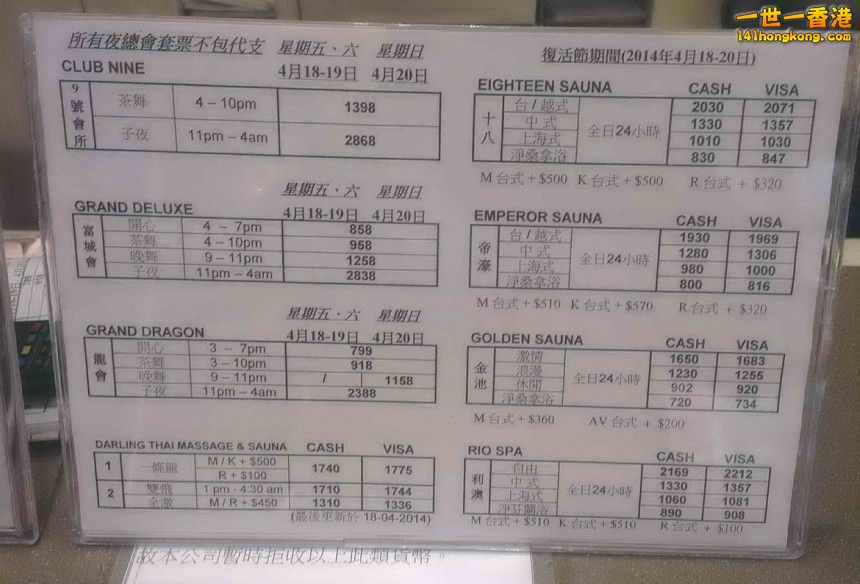 一世一香港
141hongkong.com
所有夜總會套票不包代支 星期五、六 星期日
CLUB NINE 4月18-19日 4月20日
9號會所
茶舞 4 – 10pm 1398
子夜 11pm – 4am 2868
星期五、六 星期日
GRAND DELUXE 4月18-19日 4月20日
富城會
開心 4 – 7pm 858
茶舞 4 – 10pm 958
晚舞 9 – 11pm 1258
子夜 11pm – 4am 2838
星期五、六 星期日
GRAND DRAGON 4月18-19日 4月20日
龍會
開心 3 – 7pm 799
茶舞 3 – 10pm 918
晚舞 9 – 11pm / 1158
子夜 11pm – 4am 2388
DARLING THAI MASSAGE & SAUNA CASH VISA
1 一條龍 M / K + $500 R + $100 1740 1775
2 雙飛 1 pm - 4:30 am 1710 1744
全激 M / R + $450 1310 1336
(最後更新於 18-04-2014)
復活節期間(2014年4月18-20日)
EIGHTEEN SAUNA CASH VISA
十八 全日24小時
台 / 越式 2030 2071
中 式 1330 1357
上海式 1010 1030
淨桑拿浴 830 847
M 台式 + $500 K 台式 + $500 R 台式 + $320
EMPEROR SAUNA CASH VISA
帝濠 全日24小時
台 / 越式 1930 1969
中 式 1280 1306
上海式 980 1000
淨桑拿浴 800 816
M 台式 + $510 K 台式 + $570 R 台式 + $320
GOLDEN SAUNA CASH VISA
金池 全日24小時
激情 1650 1683
浪漫 1230 1255
休閒 902 920
淨桑拿浴 720 734
M 台式 + $360 AV 台式 + $200
RIO SPA CASH VISA
利澳 全日24小時
自由 2169 2212
中 式 1330 1357
上海式 1060 1081
淨芬蘭浴 890 908
M 台式 + $510 K 台式 + $510 R 台式 + $100
故本公司暫時拒收以上此類貨幣。